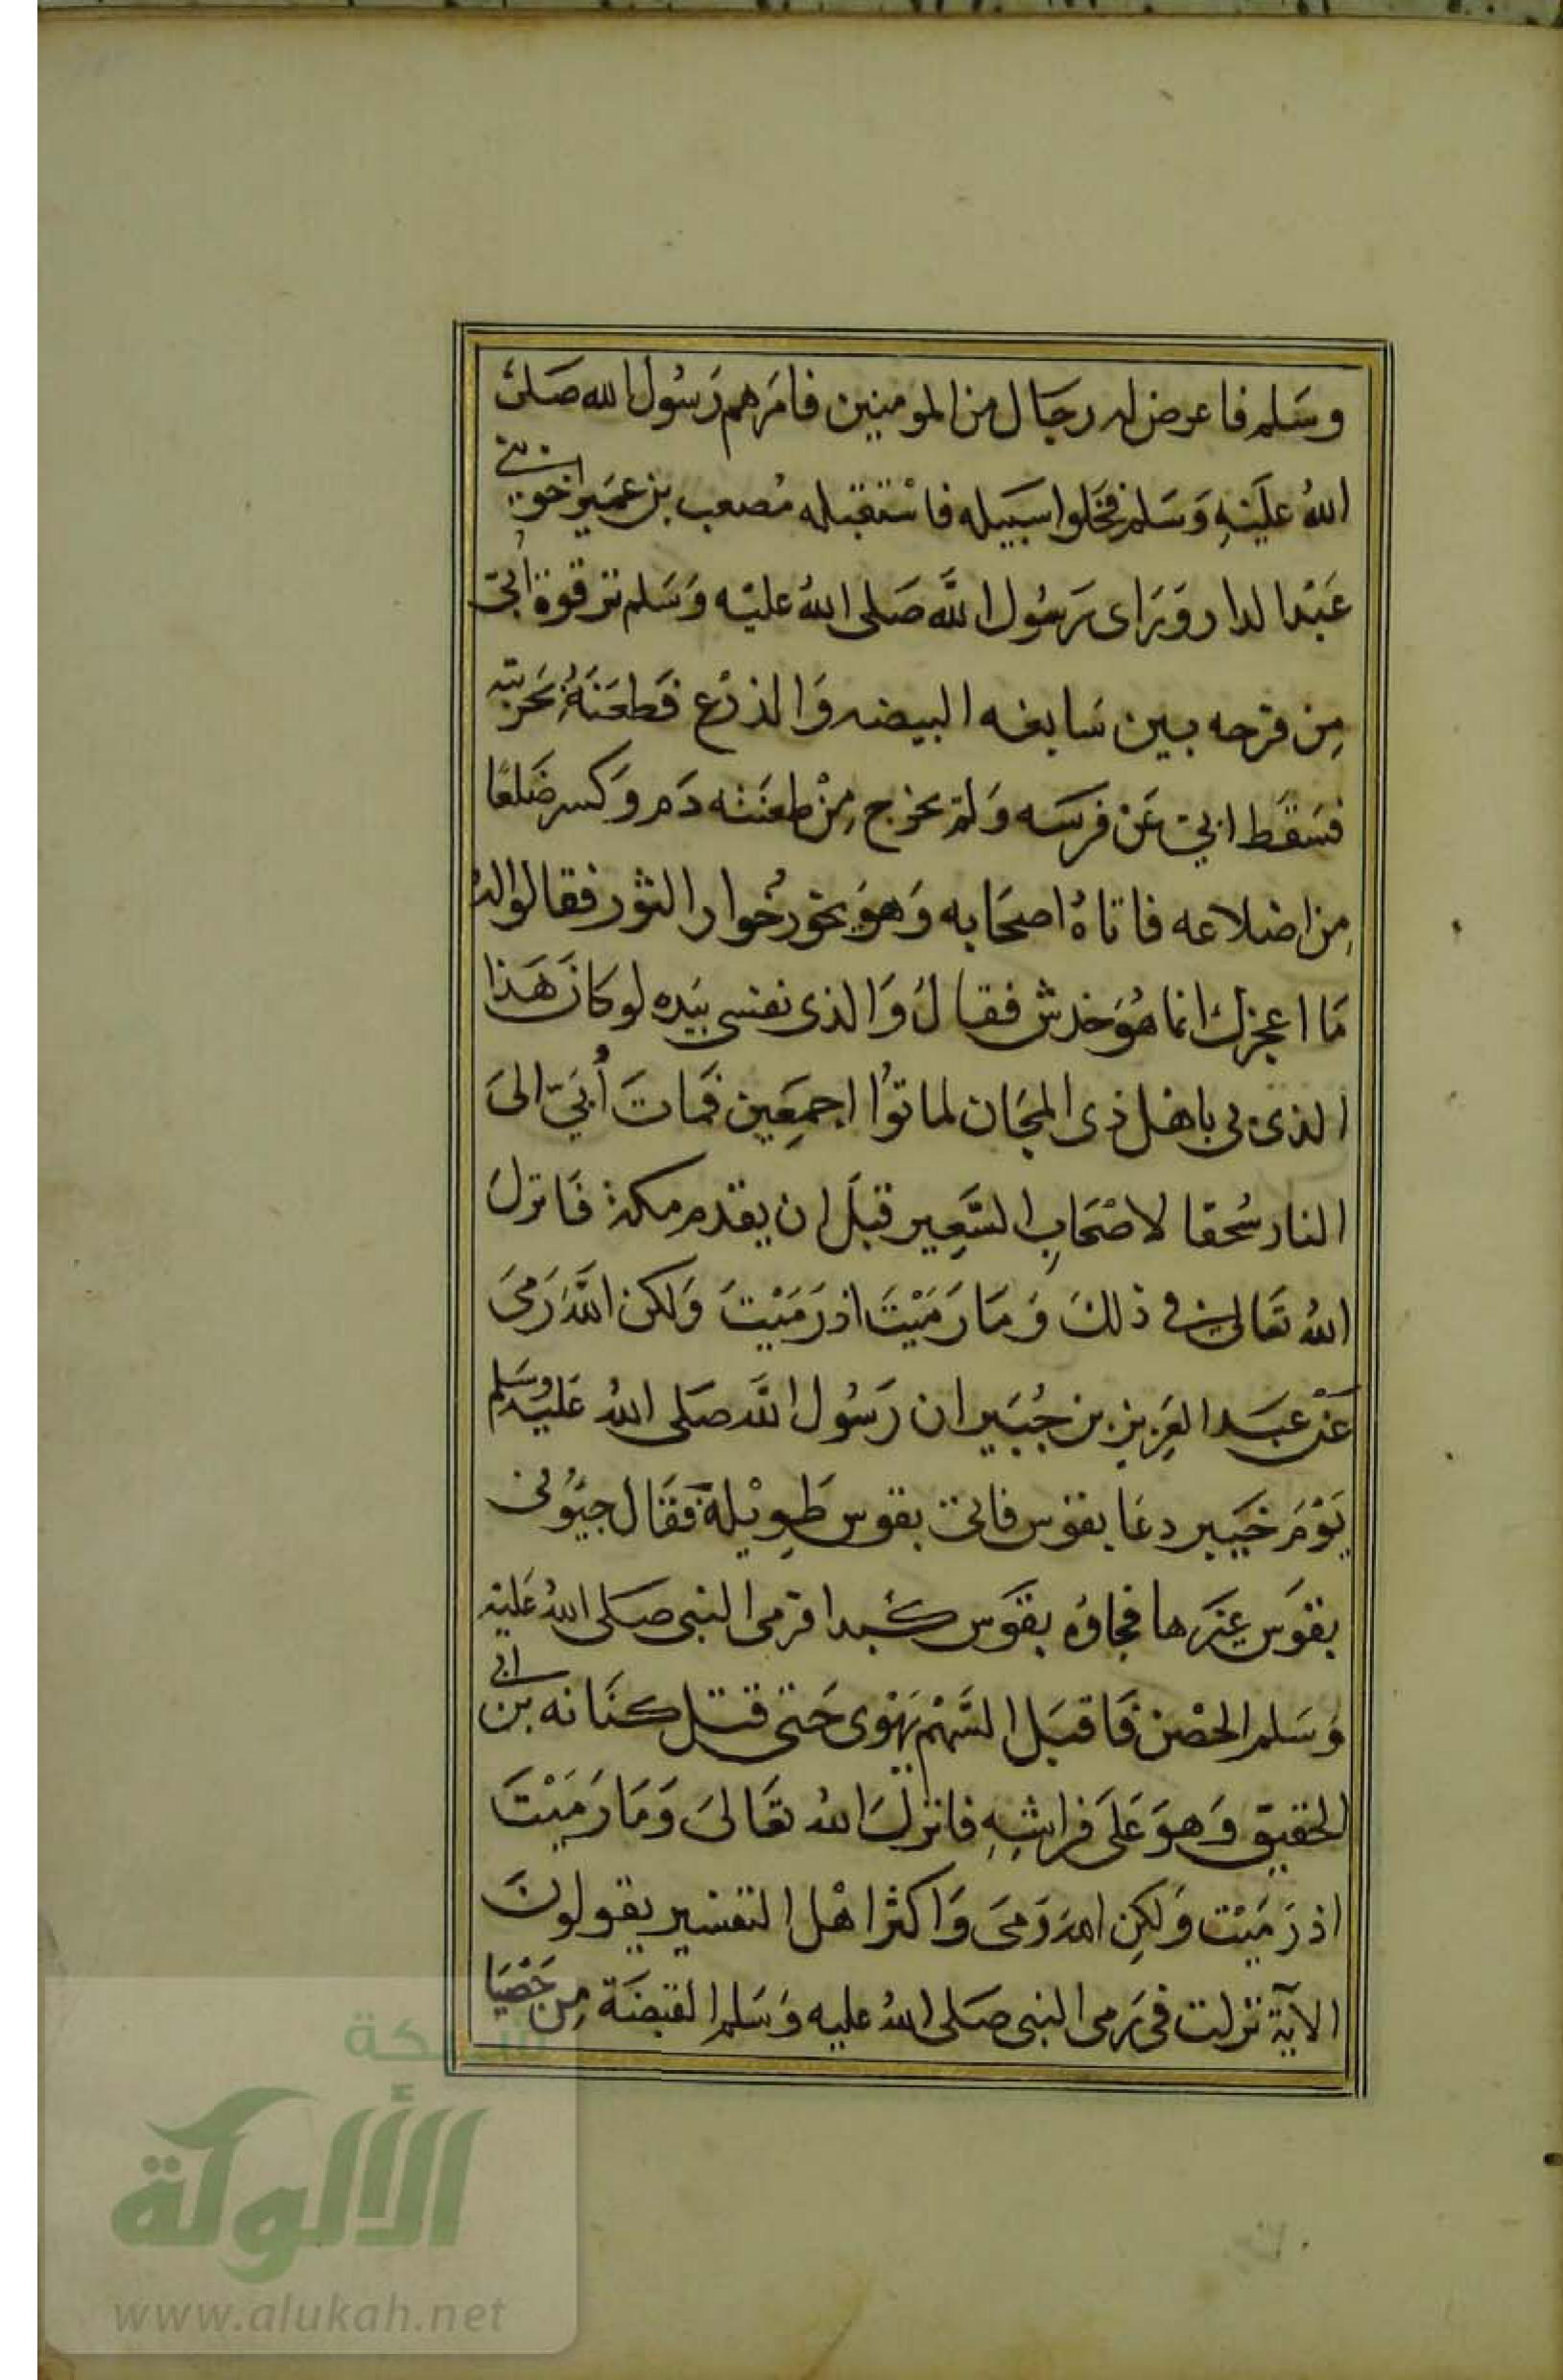 وسَلم فاعرض له رجَال من المومنين فامَرهم رَسُول الله صَلى
اللهُ علَيْهِ وَسَلم فخَلوا سَبيله فاسْتقبله مُصعب بن عمَير اخو بنى
عَبْد الدار وَرَاى رَسُول اللَّه صَلى اللهُ عليْه وَسَلم ترقوة اُبىّ
مِن فرجه بين سَابغه البيضه وَالدرْع فَطعَنَهُ بحَربته
فسَقَط ابىّ عَن فرسَه وَلم يخرج مِنْ طعنته دَم وَكسر ضَلعًا
مِن اضلاعه فاتاهُ اصحَابه وَهوَ يخور خُوار الثور فقالوا لهُ
مَا اعجزك انما هُوَ خدش فقال وَالذى نفسى بيَده لو كانَ هَذا
الذى بى باهل ذى المجَان لماتوُا اجمَعِين فمَاتَ أُبَيّ الىَ
النار سُحقا لاصْحَابِ السَّعِير قبلَ ان يقدم مكة فَانزلَ
اللهُ تعَالى فى ذلكَ وَمَا رَمَيْتَ اذ رَمَيْتَ وَلكن اللَّهَ رَمىَ
عَنْ عبَد العَزيز بن جُبَير ان رَسُول اللَّه صَلى اللهُ عَليْه وسَلم
يَوْمَ خيَبر دعَا بقوس فاتىَ بقوس طَوِيْلة فقَال جيئُونى
بقوَس غيَرها فجاؤه بقوَس كبدا فرمى النبى صَلى اللهُ عَليْه
وَسَلم الحصْن فَاقبَل السَّهْم يَهْوى حَتى قتل كنَانه بن ابى
الحقيق وَهوَ عَلَى فراشِهِ فانزلَ اللهُ تعَالىَ وَمَا رَمَيْتَ
اذ رَمَيْت وَلكِن اللهَ رَمىَ وَاكثر اهْل التفسير يقولونَ
الآية نزلت فى رَمى النبى صَلى اللهُ عليه وَسَلم القبضَة مِن حَصْيَا
شبكة
الألوكة
www.alukah.net